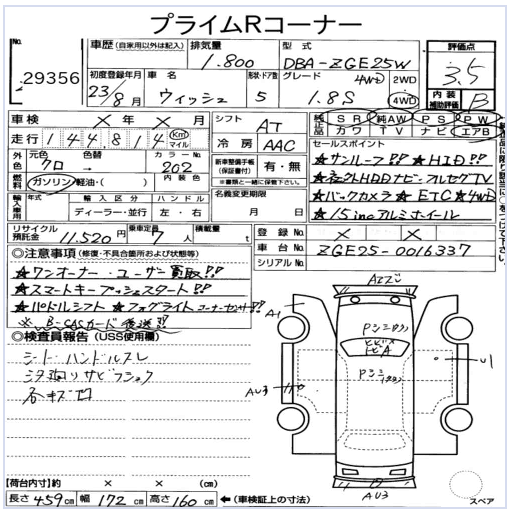 プライムRコーナー
No. 29356
車歴 (自家用以外は記入) 排気量 1.800 型式 DBA-ZGE25W 評価点 3.5
初度登録年月 23/8月 車名 ウィッシュ 形状・ドア数 5 グレード 1.8S 4WD 2WD 4WD 内装補助評価 B
車検 ×年×月 シフト AT 純正品 SR 純AW PS PW
走行 144,814 Km マイル 冷房 AAC カワ TV ナビ エアB
外色 元色 クロ 色替 カラーNo. 202 新車整備手帳(保証書付) 有・無 ※書類と一緒に保管下さい。
セールスポイント
★サンルーフ!! ★HID!!
燃料 ガソリン・軽油・( ) 内装色
★社外HDDナビ フルセグTV
輸入車用 年式 輸入区分 ディーラー・並行 ハンドル 左・右 名義変更期限 月 日
★バックカメラ ★ETC ★4WD
★15incアルミホイール
リサイクル預託金 11,520円 乗車定員 7人 積載量 t
登録No. × ×
車台No. ZGE25-0016337
シリアルNo.
◎注意事項 (修復・不具合箇所および状態等)
★ワンオーナー・ユーザー買取!!
★スマートキープッシュスタート!!
★パドルシフト ★フォグライト コーナーセンサ!!
※B-CASカード後送!!
◎検査員報告 (USS使用欄)
シート ハンドルスレ
下廻りサビ
各キズ凹
A1
AU3
U1
AU3
【荷台内寸】約 × × (cm)
長さ 459cm 幅 172cm 高さ 160cm ←(車検証上の寸法)
スペア